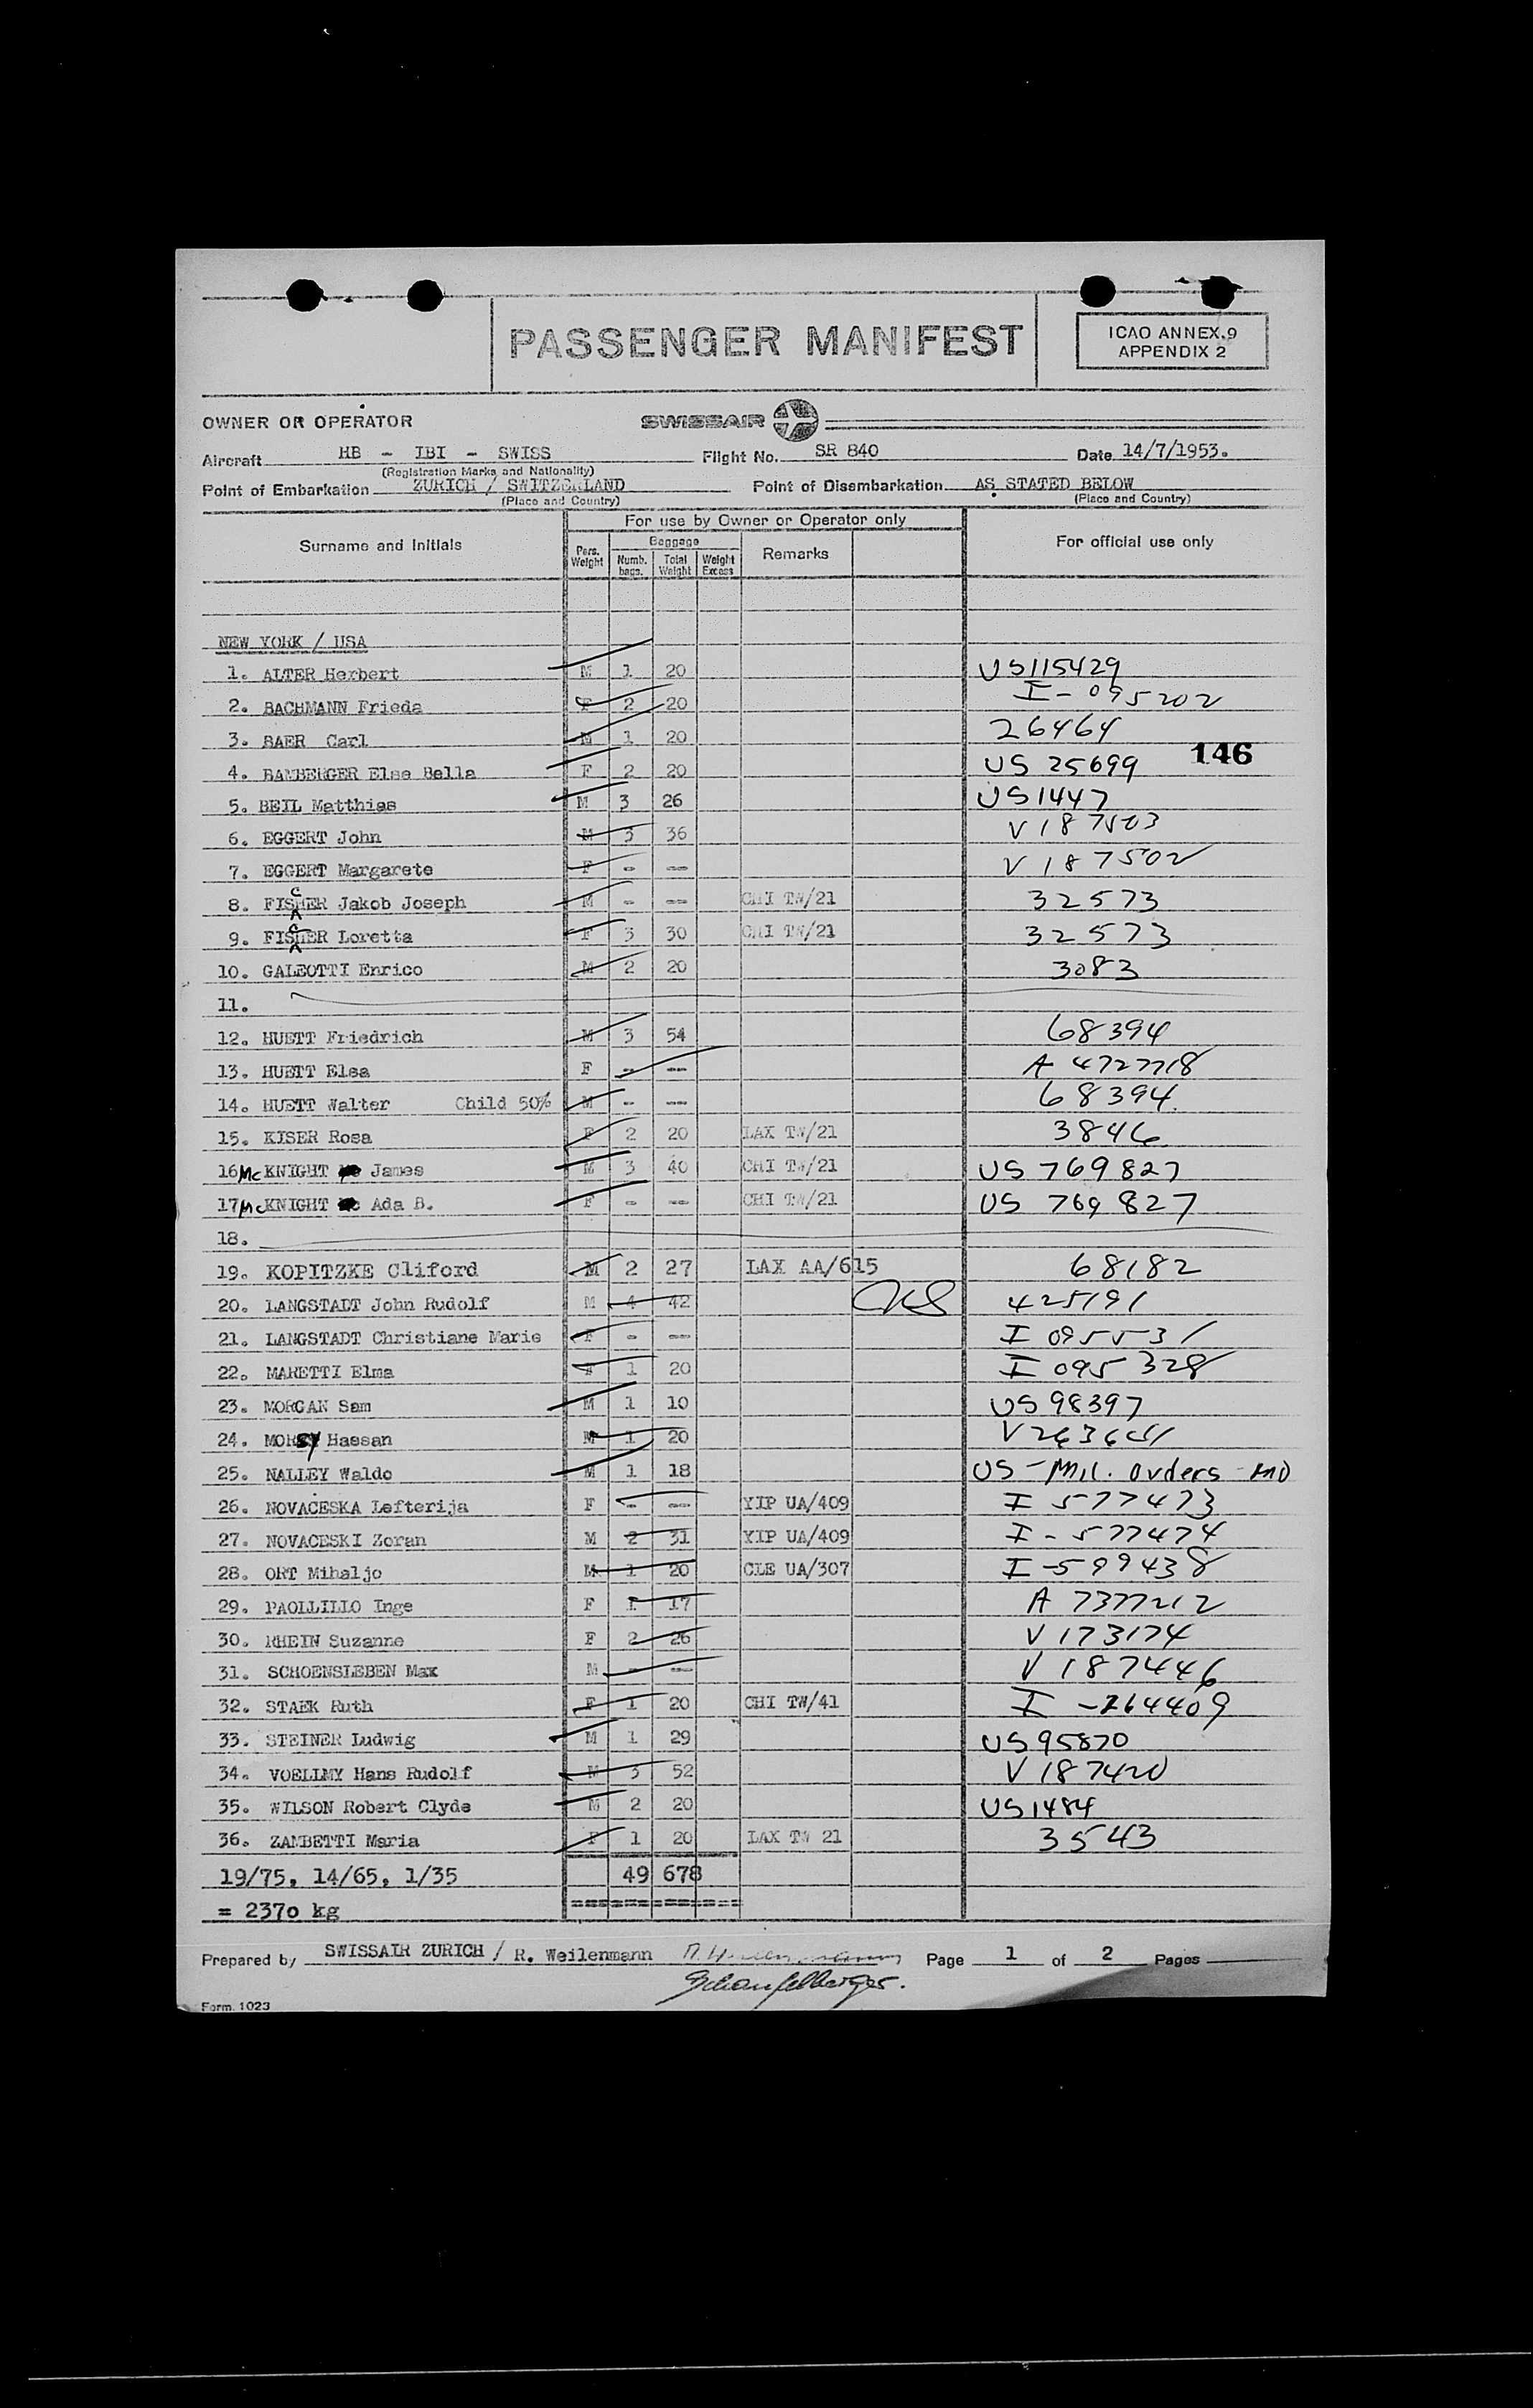 PASSENGER MANIFEST
ICAO ANNEX 9
APPENDIX 2
OWNER OR OPERATOR SWISSAIR
Aircraft HB - IBI - SWISS Flight No. SR 840 Date 14/7/1953.
(Registration Marks and Nationality)
Point of Embarkation ZURICH / SWITZERLAND Point of Disembarkation AS STATED BELOW
(Place and Country) (Place and Country)
For use by Owner or Operator only
Surname and Initials Pers. Weight Baggage Numb. bags. Total Weight Weight Excess Remarks For official use only
NEW YORK / USA
1. ALTER Herbert M 1 20 US115429
2. BACHMANN Frieda F 2 20 I-095202
3. BAER Carl M 1 20 26464
146
4. BAMBERGER Else Bella F 2 20 US 25699
5. BEIL Matthias M 3 26 US1447
6. EGGERT John M 3 36 V187503
7. EGGERT Margarete F - -- V187502
8. FISCHER Jakob Joseph M - -- CHI TW/21 32573
9. FISCHER Loretta F 3 30 CHI TW/21 32573
10. GALEOTTI Enrico M 2 20 3083
11.
12. HUETT Friedrich M 3 54 68394
13. HUETT Elsa F - -- A 4727718
14. HUETT Walter Child 50% M - -- 68394
15. KISER Rosa F 2 20 LAX TW/21 3846
16 McKNIGHT James M 3 40 CHI TW/21 US 769827
17 McKNIGHT Ada B. F - -- CHI TW/21 US 769827
18.
19. KOPITZKE Cliford M 2 27 LAX AA/615 68182
20. LANGSTADT John Rudolf M 4 42 425191
21. LANGSTADT Christiane Marie F - -- I 095531
22. MARETTI Elma F 1 20 I 095328
23. MORGAN Sam M 1 10 US98397
24. MORSY Hassan M 1 20
25. NALLEY Waldo M 1 18 US-Mil. Orders-MO
26. NOVACESKA Lefterija F - -- YIP UA/409 I 577473
27. NOVACESKI Zoran M 2 31 YIP UA/409 I-577474
28. ORT Mihaljo M 1 20 CLE UA/307 I-599438
29. PAOLLILLO Inge F 1 17 A 7377212
30. RHEIN Suzanne F 2 26 V173174
31. SCHOENSLEBEN Max M - -- V187446
32. STAEK Ruth F 1 20 CHI TW/41 I-264409
33. STEINER Ludwig M 1 29 US95870
34. VOELLMY Hans Rudolf M 3 52 V187420
35. WILSON Robert Clyde M 2 20 US1484
36. ZAMBETTI Maria F 1 20 LAX TW 21 3543
19/75, 14/65, 1/35 49 678
= 2370 kg
Prepared by SWISSAIR ZURICH / R. Weilenmann Page 1 of 2 Pages
Schaufelberger.
Form. 1023